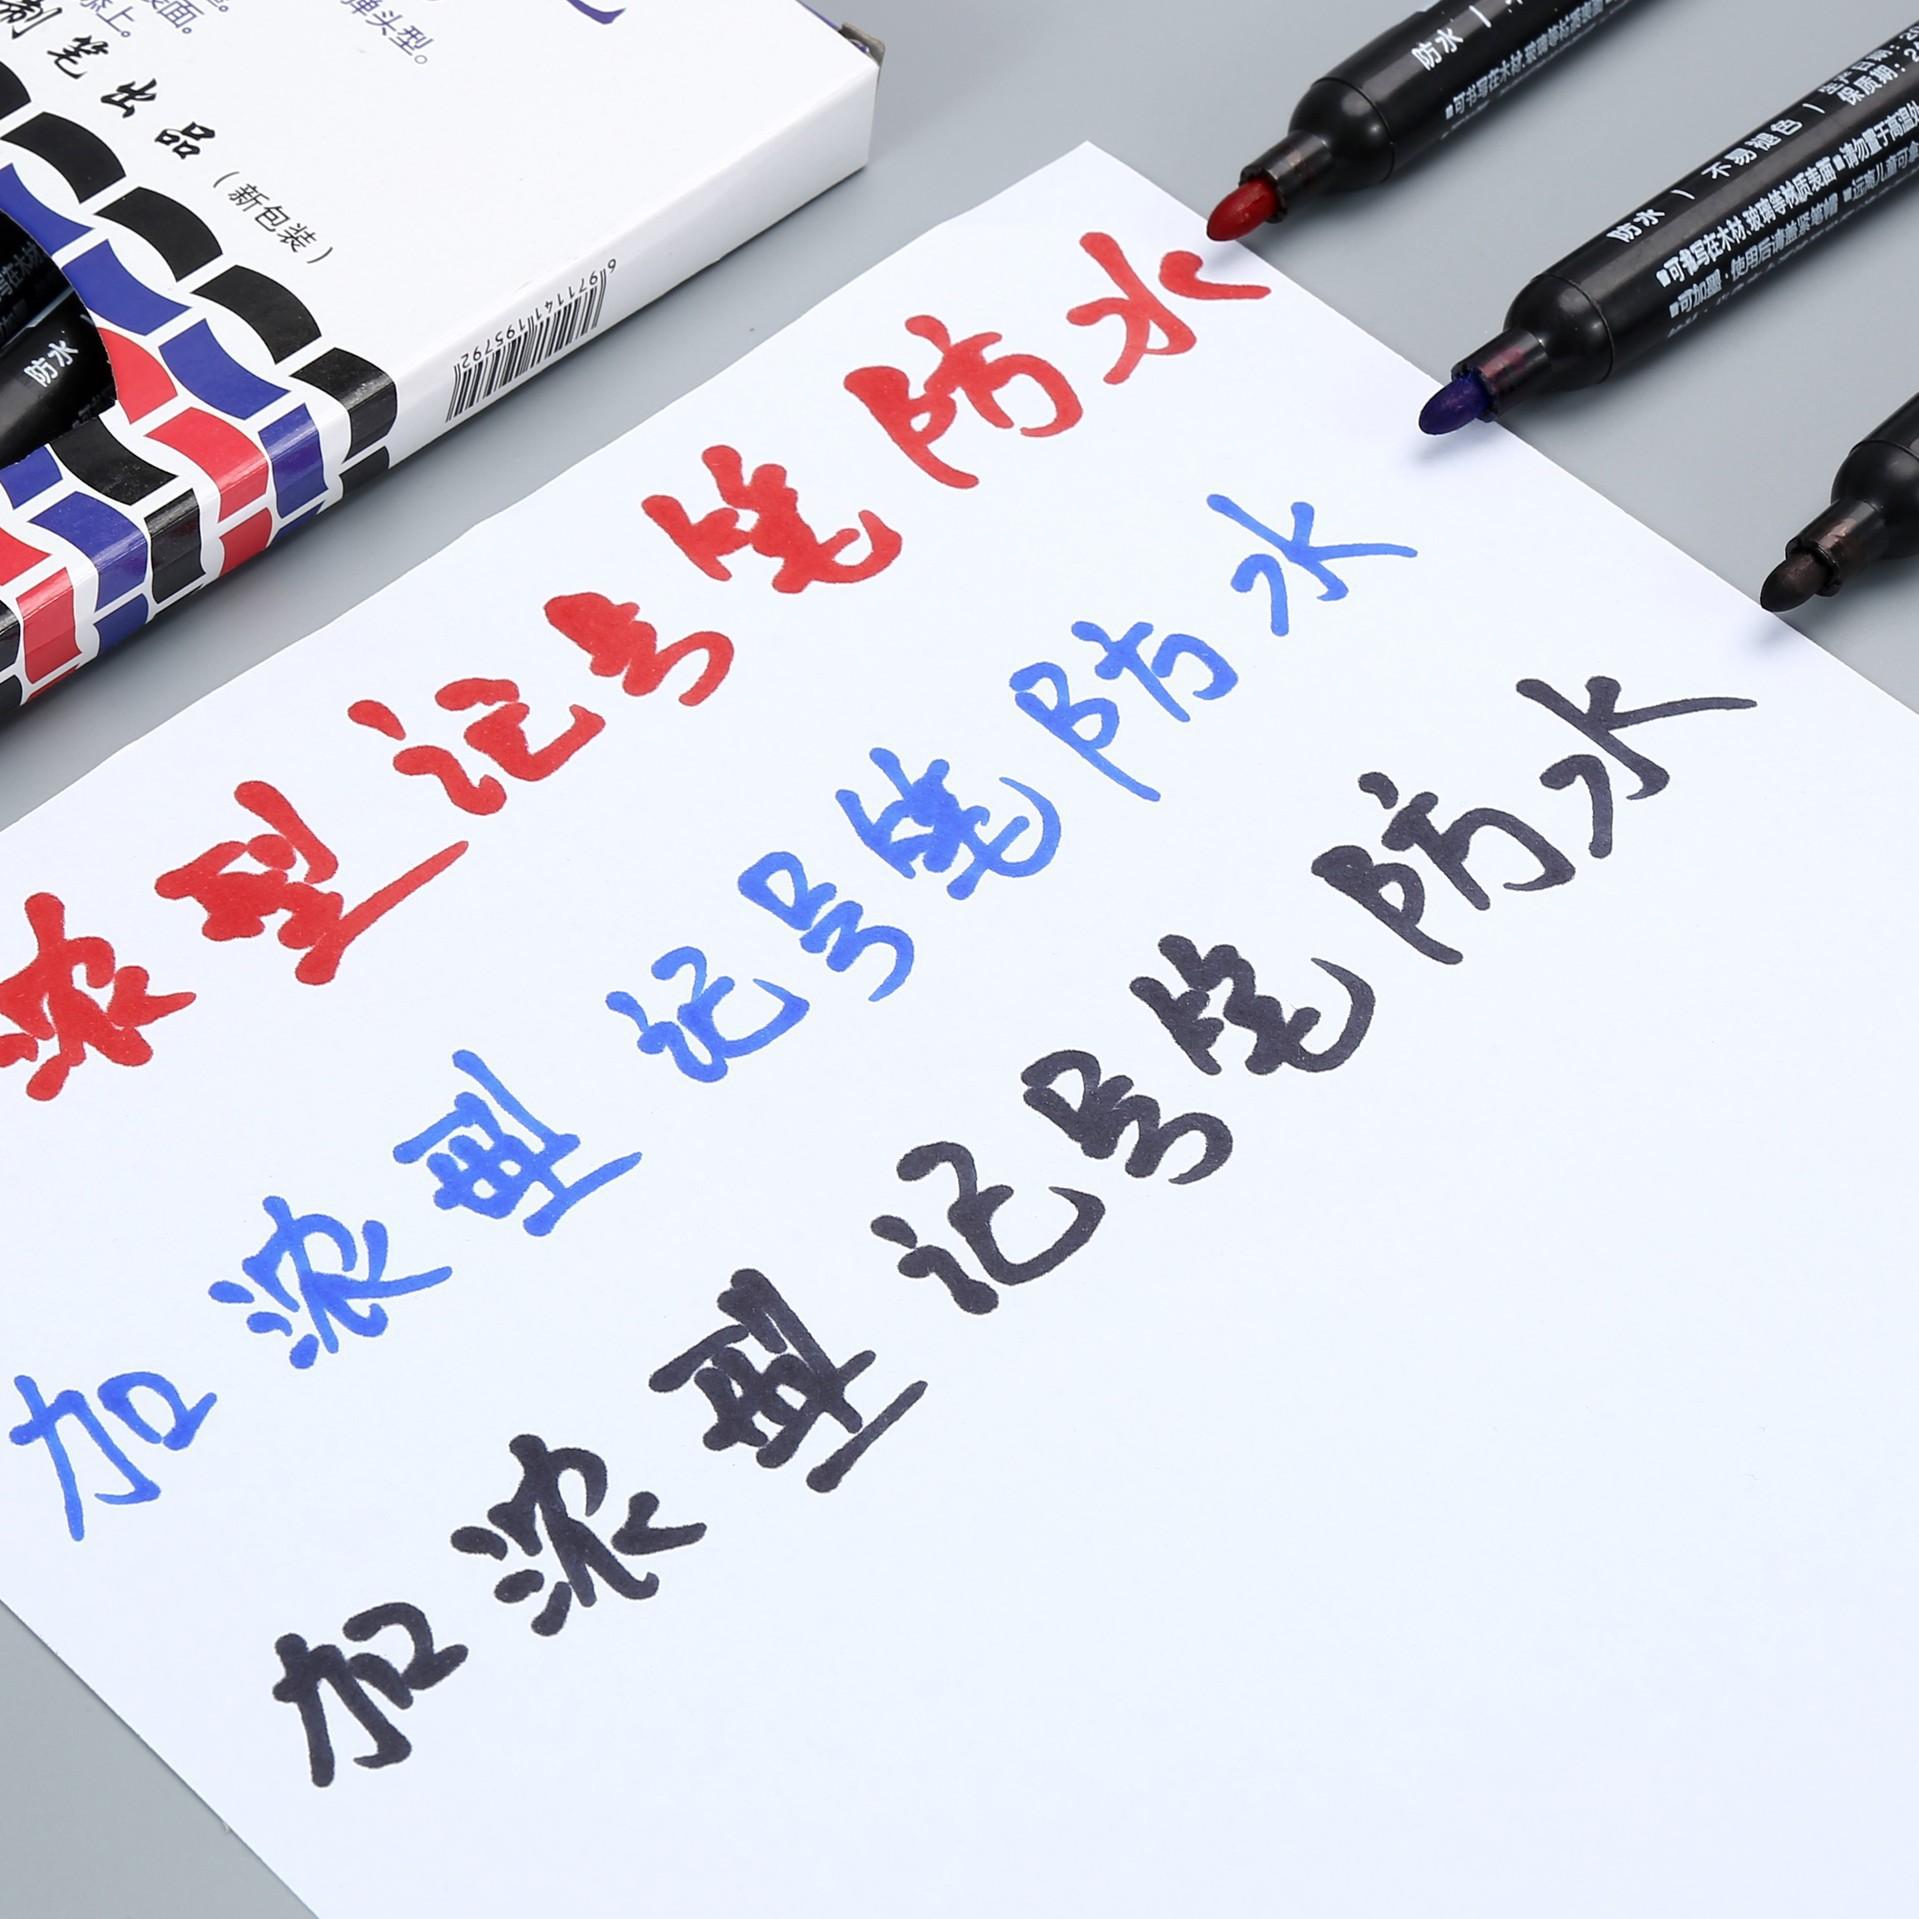 面。
添上。
弹头型。
制笔出品
(新包装)
6971141195792
防水
浓型记号笔防水
加浓型记号笔防水
加浓型记号笔防水
防水 |
■可书写在木材、玻璃等材质表面
防水 | 不易褪色 |
保质期：
■可书写在木材、玻璃等材质表面 ■请勿置于高温处
■可加墨·使用后请盖紧笔帽